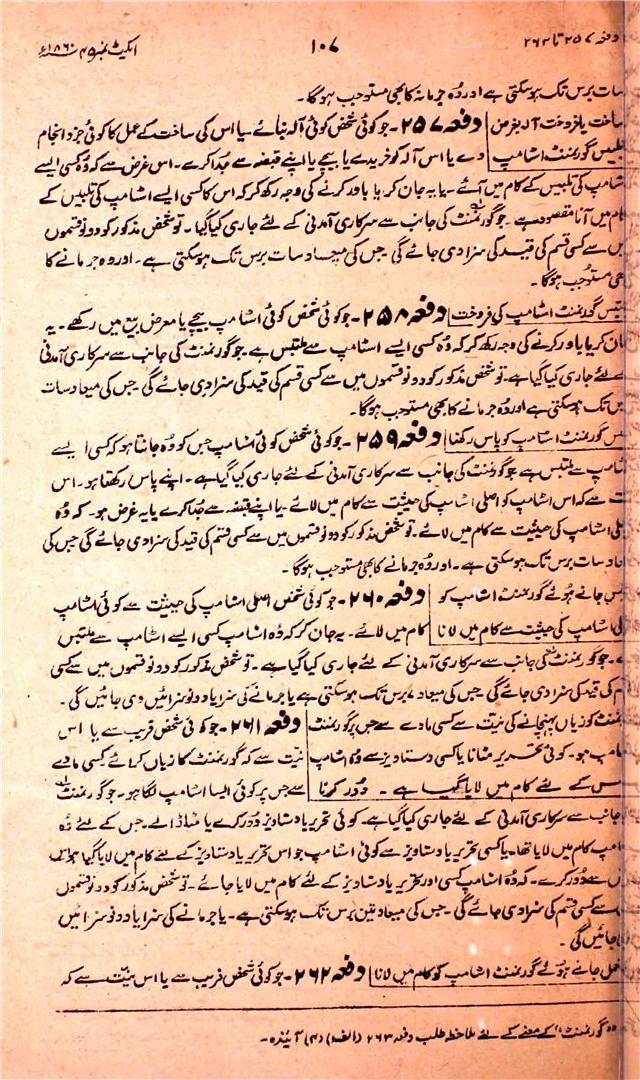 دفعہ ۲۵۷ تا ۲۶۲ ۱۰۷ ایکٹ نمبر ۴۵ ۱۸۶۰ء
سات برس تک ہوسکتی ہے اور وہ جرمانہ کا بھی مستوجب ہوگا۔
ساخت یا فروخت آلہ بغرض دفعہ ۲۵۷۔ جو کوئی شخص کوئی آلہ بنائے۔ یا اس کی ساخت کے عمل کا کوئی جزو انجام
تلبیس گورنمنٹ اسٹامپ دے یا اس آلہ کو خریدے یا بیچے یا اپنے قبضہ سے جدا کرے۔ اس غرض سے کہ وہ کسی ایسے
اسٹامپ کی تلبیس کے کام میں آئے۔ یا یہ جان کر یا باور کرنے کی وجہ رکھ کر کہ اس کا کسی ایسے اسٹامپ کی تلبیس کے
کام میں آنا مقصود ہے۔ جو گورنمنٹ کی جانب سے سرکاری آمدنی کے لئے جاری کیا گیا۔ تو شخص مذکور کو دونو قسموں
میں سے کسی قسم کی قید کی سزا دی جائے گی جس کی میعاد سات برس تک ہوسکتی ہے۔ اور وہ جرمانے کا
بھی مستوجب ہوگا۔
تلبیس گورنمنٹ اسٹامپ کی فروخت دفعہ ۲۵۸۔ جو کوئی شخص کوئی اسٹامپ بیچے یا معرض بیع میں رکھے۔ یہ
جان کر یا باور کرنے کی وجہ رکھ کر کہ وہ کسی ایسے اسٹامپ سے ملتبس ہے۔ جو گورنمنٹ کی جانب سے سرکاری آمدنی
کے لئے جاری کیا گیا ہے۔ تو شخص مذکور کو دونو قسموں میں سے کسی قسم کی قید کی سزا دی جائے گی۔ جس کی میعاد سات
برس تک ہوسکتی ہے اور وہ جرمانے کا بھی مستوجب ہوگا۔
ملتبس گورنمنٹ اسٹامپ کو پاس رکھنا دفعہ ۲۵۹۔ جو کوئی شخص کوئی اسٹامپ جس کو وہ جانتا ہو کہ کسی ایسے
اسٹامپ سے ملتبس ہے جو گورنمنٹ کی جانب سے سرکاری آمدنی کے لئے جاری کیا گیا ہے۔ اپنے پاس رکھتا ہو۔ اس
نیت سے کہ اس اسٹامپ کو اصلی اسٹامپ کی حیثیت سے کام میں لائے۔ یا اپنے قبضہ سے جدا کرے یا یہ غرض ہو۔ کہ وہ
اصلی اسٹامپ کی حیثیت سے کام میں لائے۔ تو شخص مذکور کو دونو قسموں میں سے کسی قسم کی قید کی سزا دی جائے گی جس کی
میعاد سات برس تک ہوسکتی ہے۔ اور وہ جرمانے کا بھی مستوجب ہوگا۔
ملتبس جانے ہوئے گورنمنٹ اسٹامپ کو دفعہ ۲۶۰۔ جو کوئی شخص اصلی اسٹامپ کی حیثیت سے کوئی اسٹامپ
اصلی اسٹامپ کی حیثیت سے کام میں لانا کام میں لائے۔ یہ جان کر کہ وہ اسٹامپ کسی ایسے اسٹامپ سے ملتبس
ہے۔ جو گورنمنٹ کی جانب سے سرکاری آمدنی کے لئے جاری کیا گیا ہے۔ تو شخص مذکور کو دونو قسموں میں سے کسی
قسم کی قید کی سزا دی جائے گی جس کی میعاد ۷ برس تک ہوسکتی ہے یا جرمانے کی سزا یا دونو سزائیں دی جائیں گی۔
گورنمنٹ کو زیاں پہنچانے کی نیت سے کسی مادے سے جس پر گورنمنٹ دفعہ ۲۶۱۔ جو کوئی شخص فریب سے یا اس
اسٹامپ ہو۔ کوئی تحریر مٹانا یا کسی دستاویز سے وہ اسٹامپ نیت سے کہ گورنمنٹ کا زیاں کرائے کسی مادے
جو اس کے لئے کام میں لایا گیا ہے۔ دور کرنا سے جس پر کوئی ایسا اسٹامپ لگا ہو۔ جو گورنمنٹ
کی جانب سے سرکاری آمدنی کے لئے جاری کیا گیا ہے۔ کوئی تحریر یا دستاویز دور کرے یا مٹا ڈالے۔ جس کے لئے وہ
اسٹامپ کام میں لایا تھا۔ یا کسی تحریر یا دستاویز سے کوئی اسٹامپ جو اس تحریر یا دستاویز کے لئے کام میں لایا گیا ہو اس
سے دور کرے۔ کہ وہ اسٹامپ کسی اور تحریر یا دستاویز کے لئے کام میں لایا جائے۔ تو شخص مذکور کو دونو قسموں
میں سے کسی قسم کی سزا دی جائے گی۔ جس کی میعاد تین برس تک ہوسکتی ہے۔ یا جرمانے کی سزا یا دونو سزائیں
دی جائیں گی۔
مستعمل جانے ہوئے گورنمنٹ اسٹامپ کو کام میں لانا دفعہ ۲۶۲۔ جو کوئی شخص فریب سے یا اس نیت سے کہ
"گورنمنٹ" کے معنے کے لئے ملاحظہ طلب دفعہ ۲۶۳ (الف) (۴) آئندہ۔